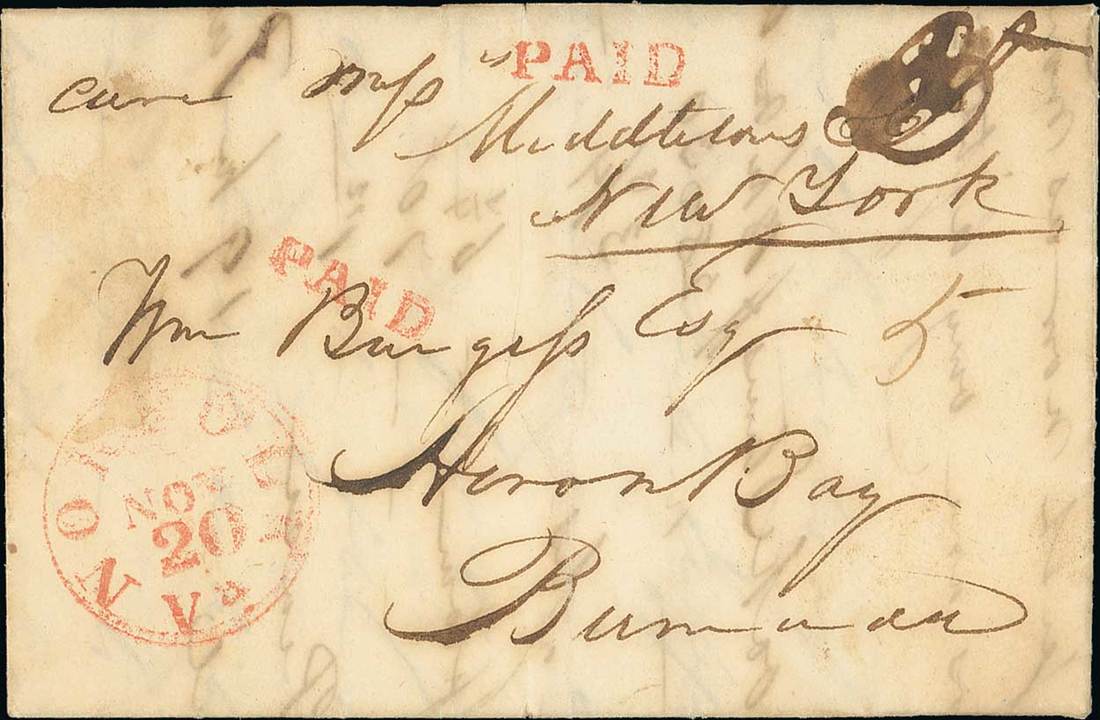 PAID
care Mess
Middletons & Co
New York
PAID
Wm Burgess Esq 5
Heron Bay
Bermuda
NORFOLK Va
NOV
20